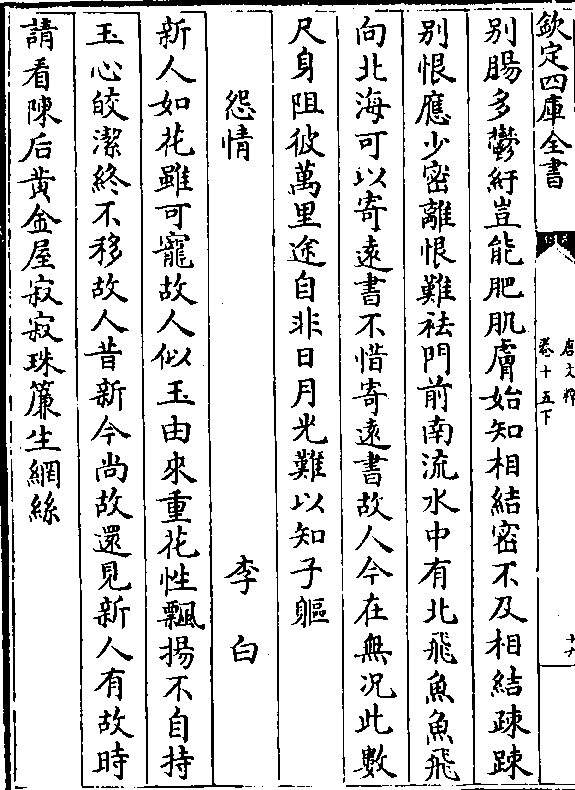 欽定四庫全書
唐文粹
卷十五下
別腸多鬱紆豈能肥肌膚始知相結密不及相結疎踈
別恨應少密離恨難祛門前南流水中有北飛魚魚飛
向北海可以寄遠書不惜寄遠書故人今在無况此數
尺身阻彼萬里途自非日月光難以知子軀
怨情
李白
新人如花雖可寵故人似玉由來重花性飄揚不自持
玉心皎潔終不移故人昔新今尚故還見新人有故時
請看陳后黄金屋寂寂珠簾生網絲